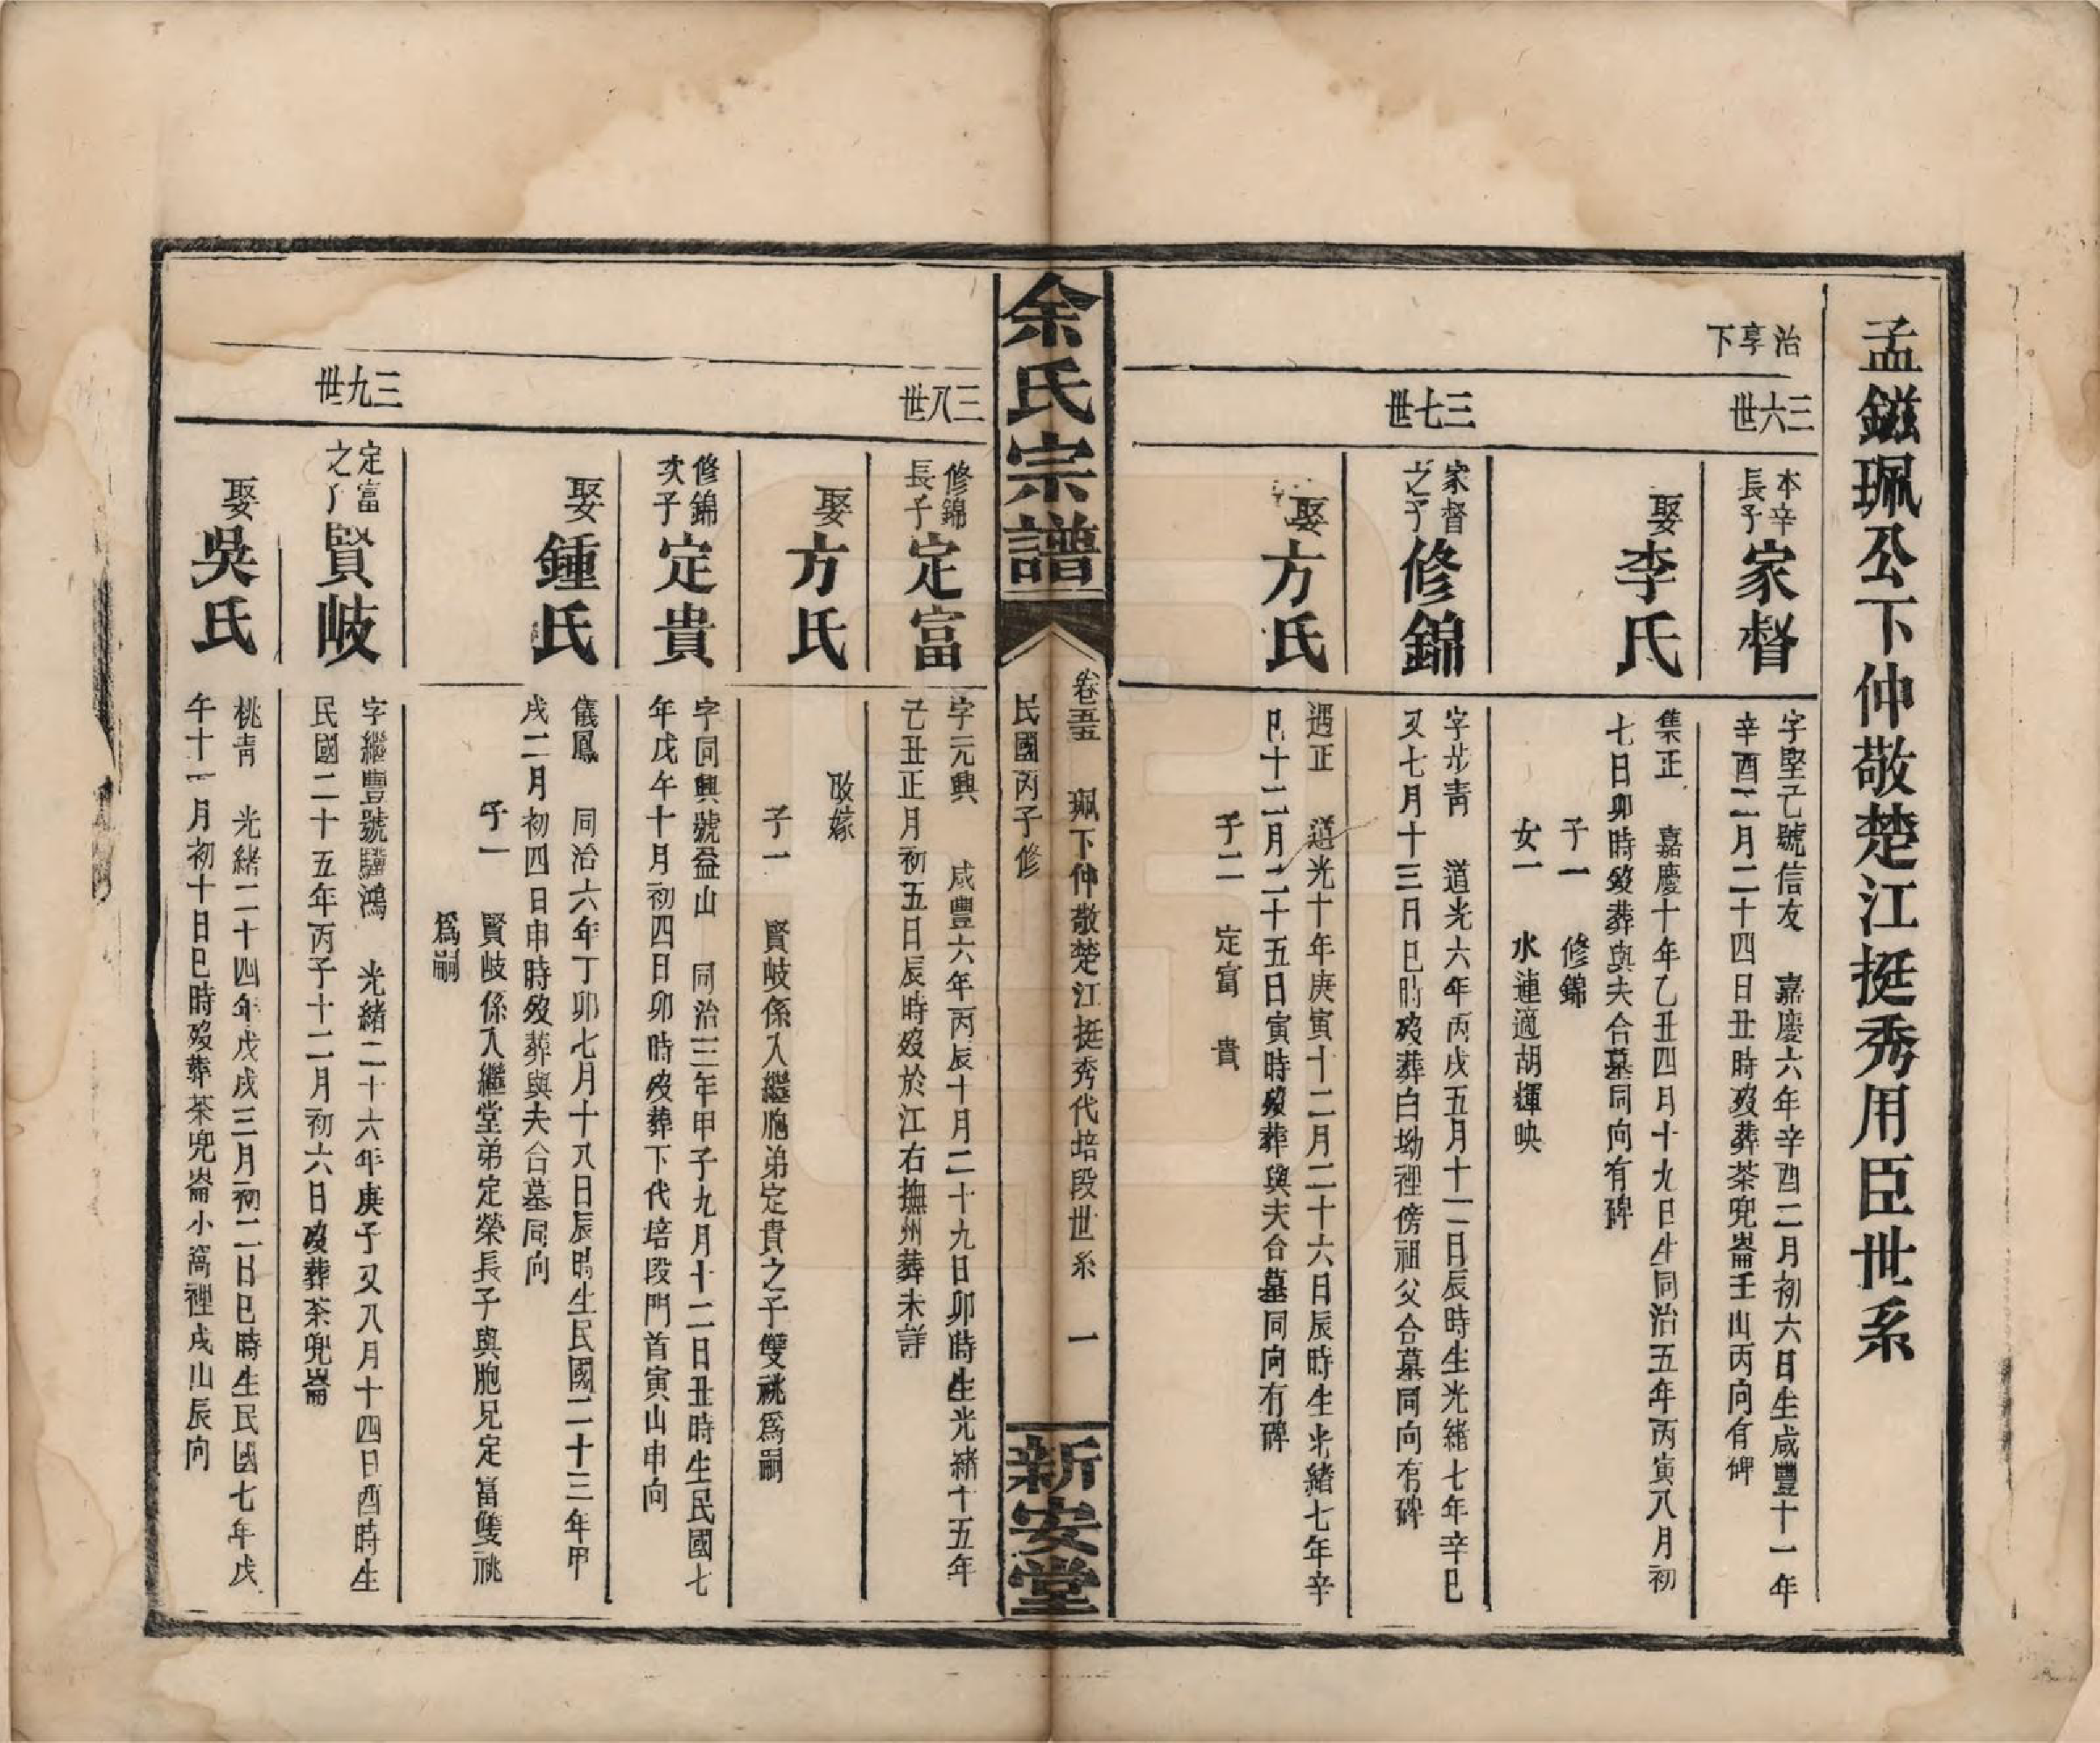 孟鎡珮公下仲敬楚江挺秀用臣世系
治享下
三六世
本辛長子
家督
字堅乙號信友　嘉慶六年辛酉二月初六日生咸豐十一年
辛酉二月二十四日丑時歿葬茶兜崙壬山丙向有碑
娶李氏
集正　嘉慶十年乙丑四月十九日生同治五年丙寅八月初
七日卯時歿葬與夫合墓同向有碑
子一　修錦
女一　水連適胡輝映
三七世
家督之子
修錦
字光青　道光六年丙戌五月十一日辰時生光緒七年辛巳
又七月十三日巳時歿葬白坳裡傍祖父合墓同向有碑
娶方氏
遇正　道光十年庚寅十二月二十六日辰時生光緒七年辛
巳十二月二十五日寅時歿葬與夫合墓同向有碑
子二　定富　貴
余氏宗譜
卷五五　珮下仲敬楚江挺秀代培段世系　一
民國丙子修
新安堂
三八世
修錦長子
定富
字元興　咸豐六年丙辰十月二十九日卯時生光緒十五年
己丑正月初五日辰時歿於江右撫州葬未詳
娶方氏
改嫁
子一　賢岐係入繼胞弟定貴之子雙祧爲嗣
修錦次子
定貴
字同興號益山　同治三年甲子九月十二日丑時生民國七
年戊午十月初四日卯時歿葬下代培段門首寅山申向
娶鍾氏
儀鳳　同治六年丁卯七月十八日辰時生民國二十三年甲
戌二月初四日申時歿葬與夫合墓同向
子一　賢岐係入繼堂弟定榮長子與胞兄定富雙祧
爲嗣
三九世
定富之子
賢岐
字繼豐號驥鴻　光緒二十六年庚子又八月十四日酉時生
民國二十五年丙子十二月初六日歿葬茶兜崙
娶吳氏
桃青　光緒二十四年戊戌三月初二日巳時生民國七年戊
午十一月初十日巳時歿葬茶兜崙小窩裡戌山辰向